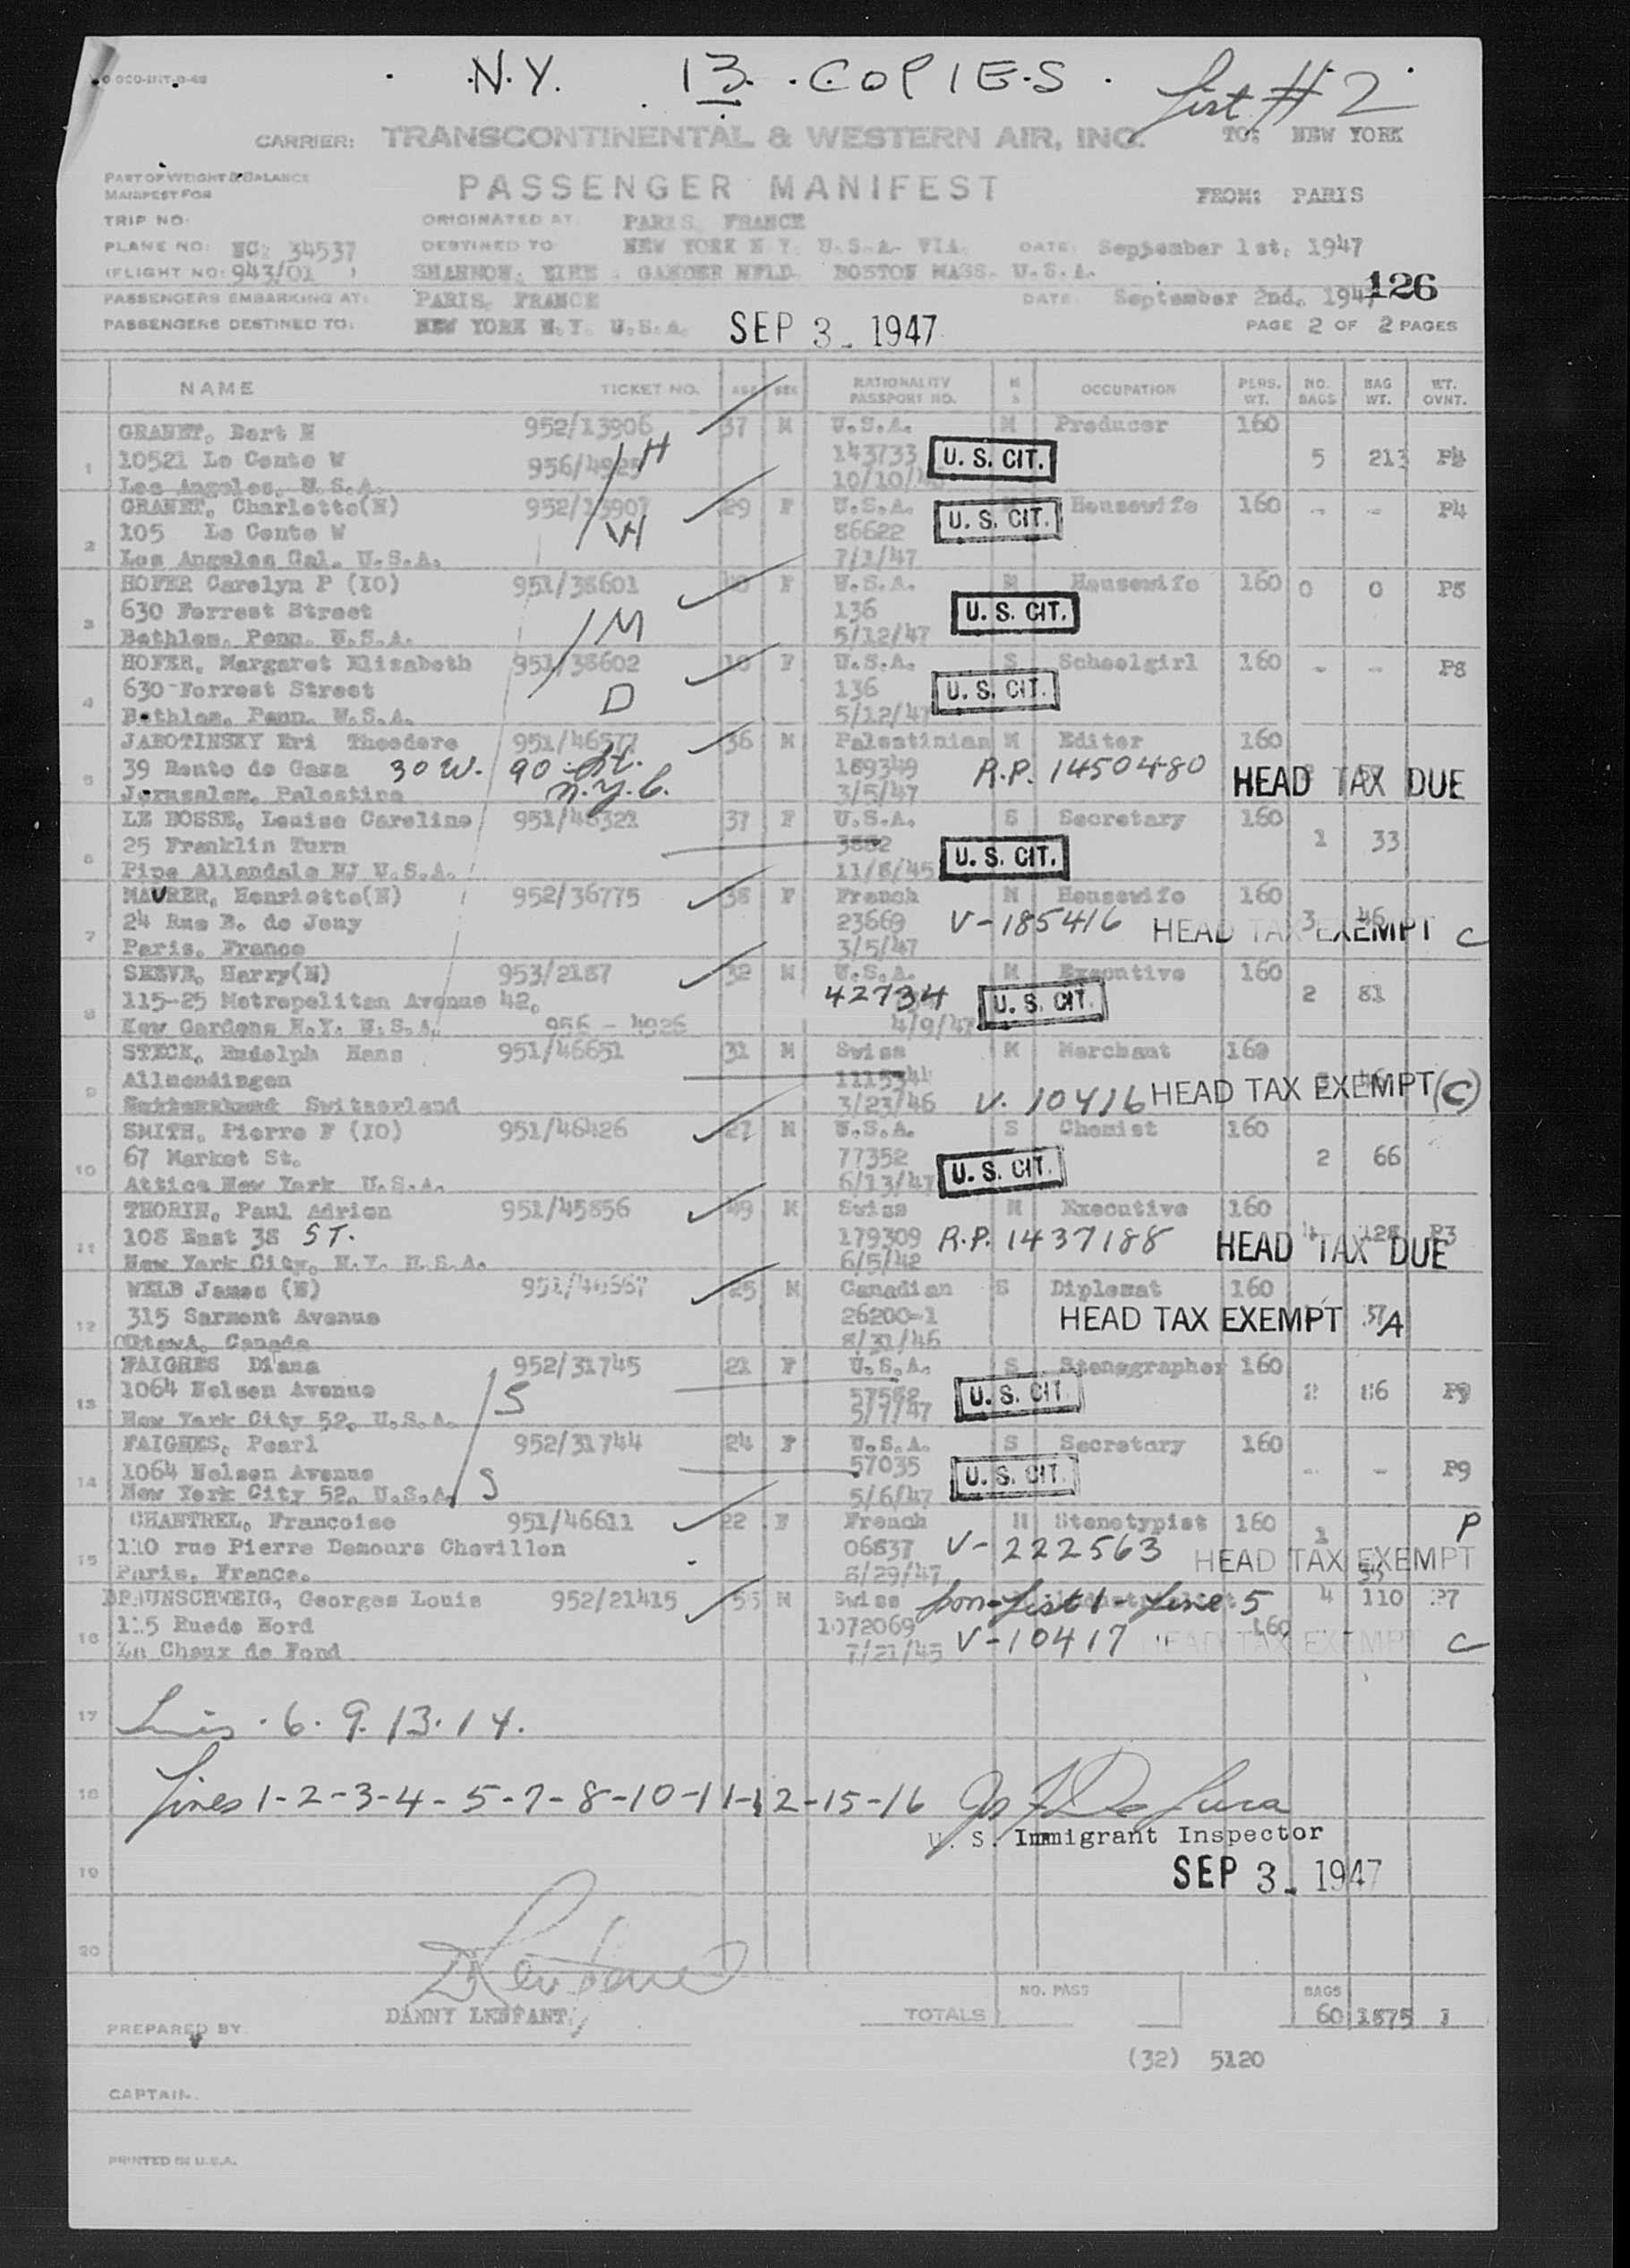 N.Y. 13 COPIES List #2
CARRIER: TRANSCONTINENTAL & WESTERN AIR, INC. TO: NEW YORK
PART OF WEIGHT & BALANCE
MANIFEST FOR
PASSENGER MANIFEST FROM: PARIS
TRIP NO. ORIGINATED AT PARIS, FRANCE
PLANE NO: NC: 34537 DESTINED TO NEW YORK N Y. U.S.A. VIA. DATE: September 1st, 1947
(FLIGHT NO: 943/01 ) SHANNON, EIRE GANDER NFLD. BOSTON MASS. U.S.A.
126
PASSENGERS EMBARKING AT: PARIS, FRANCE DATE: September 2nd. 1947
PASSENGERS DESTINED TO: NEW YORK N.Y. U.S.A. SEP 3 - 1947 PAGE 2 OF 2 PAGES
NAME TICKET NO. AGE SEX NATIONALITY PASSPORT NO. M S OCCUPATION PERS. WT. NO. BAGS BAG WT. WT. OVNT.
GRANET, Bert N 952/13906 37 M U.S.A. M Producer 160
1 10521 Le Conte W 956/4925 H 143733 U. S. CIT. 5 213
Los Angeles, U.S.A. 10/10/
GRANET, Charlotte(N) 952/13907 29 F U.S.A. Housewife 160 - - P4
2 105 Le Conte W W 86622 U. S. CIT.
Los Angeles Cal. U.S.A. 7/1/47
HOFER Carolyn P (IO) 951/38601 F U.S.A. M Housewife 160 0 0 P8
3 630 Forrest Street M 136 U. S. CIT.
Bethlem, Penn. U.S.A. 5/12/47
HOFER, Margaret Elisabeth 951/38602 F U.S.A. S Schoolgirl 160 - - P8
4 630 Forrest Street D 136 U. S. CIT.
Bethlem, Penn. U.S.A. 5/12/47
JABOTINSKY Eri Theodore 951/46577 36 M Palestinian M Editor 160
5 39 Route de Gaza 30 W. 90 St. N.Y.C. 189349 R.P. 1450480 HEAD TAX DUE
Jerusalem, Palestine 3/5/47
LE BOSSE, Louise Caroline 951/46321 37 F U.S.A. S Secretary 160
6 25 Franklin Turn 3882 U. S. CIT. 1 33
Pipe Allendale NJ U.S.A. 11/8/45
MAURER, Henriette(N) 952/36775 38 F French M Housewife 160
7 24 Rue B. de Jouy 23669 V-185416 HEAD TAX EXEMPT C 3 46
Paris, France 3/5/47
Harry(N) 953/2187 32 M U.S.A. M Executive 160
8 115-25 Metropolitan Avenue 42. 42734 U. S. CIT. 2 81
Kew Gardens N.Y. U.S.A. 956 - 4926 4/9/47
STECK, Rudolph Hans 951/46651 31 M Swiss M Merchant 160
9 Allmendingen 1115341 HEAD TAX EXEMPT (C)
Switzerland 3/23/46 V. 10416
SMITH, Pierre F (IO) 951/46426 27 M U.S.A. S Chemist 160
10 67 Market St. 77352 U. S. CIT. 2 66
Attica New York U.S.A. 6/13/47
THORIN, Paul Adrien 951/45856 49 M Swiss M Executive 160
11 108 East 38 ST. 179309 R.P. 1437188 HEAD TAX DUE 4 128 P3
New York City, N.Y. U.S.A. 6/5/42
WELB James (N) 951/46667 25 M Canadian S Diplomat 160
12 315 Sarmont Avenue 26200-1 HEAD TAX EXEMPT 57 A
Ottawa, Canada 8/31/46
FAIGHES Diana 952/31745 21 F U.S.A. S Stenographer 160
13 1064 Nelson Avenue S 57582 U. S. CIT. 2 86 P9
New York City 52, U.S.A. 5/7/47
FAIGHES, Pearl 952/31744 24 F U.S.A. S Secretary 160
14 1064 Nelson Avenue S 57035 U. S. CIT. - - P9
New York City 52, U.S.A. 5/6/47
CHANTREL, Francoise 951/46611 22 F French M Stenotypist 160 1 P
15 110 rue Pierre Demours Chevillon 06837 V-222563 HEAD TAX EXEMPT
Paris, France. 8/29/47
BRAUNSCHWEIG, Georges Louis 952/21415 55 M Swiss List 1 - Line 5 4 110 P7
16 115 Ruede Nord 1072069 V-10417 160 HEAD TAX EXEMPT C
La Chaux de Fond 7/21/45
17 Lines . 6. 9. 13. 14.
18 Lines 1-2-3-4-5-7-8-10-11-12-15-16
U. S. Immigrant Inspector
19 SEP 3 - 1947
20
NO. PASS BAGS
DANNY LENFANT TOTALS 60 1875
PREPARED BY
(32) 5120
CAPTAIN.
PRINTED IN U.S.A.